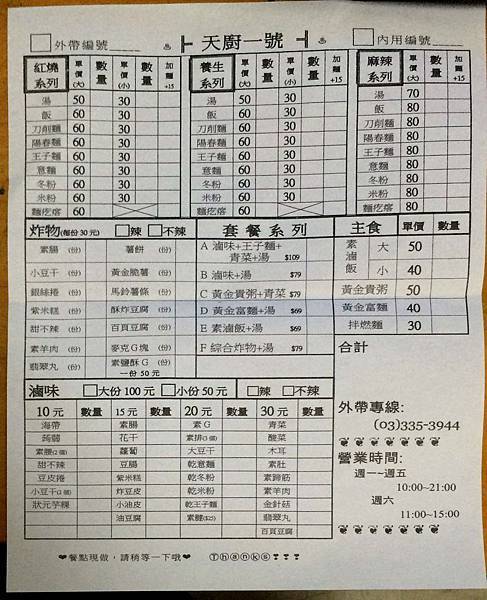 外帶編號 天廚一號 內用編號
紅燒系列 單價(大) 數量 單價(小) 數量 加麵+15 養生系列 單價(大) 數量 單價(小) 數量 加麵+15 麻辣系列 單價(大) 數量 加麵+15
湯 50 30 湯 50 30 湯 70
飯 60 30 飯 60 30 飯 80
刀削麵 60 30 刀削麵 60 30 刀削麵 80
陽春麵 60 30 陽春麵 60 30 陽春麵 80
王子麵 60 30 王子麵 60 30 王子麵 80
意麵 60 30 意麵 60 30 意麵 80
冬粉 60 30 冬粉 60 30 冬粉 80
米粉 60 30 米粉 60 30 米粉 80
麵疙瘩 60 麵疙瘩 60 麵疙瘩 80
炸物(每份30元) 辣 不辣
素腸 (份) 薯餅 (份)
小豆干 (份) 黃金脆薯 (份)
銀絲捲 (份) 馬鈴薯條 (份)
紫米糕 (份) 酥炸豆腐 (份)
甜不辣 (份) 百頁豆腐 (份)
素羊肉 (份) 麥克G塊 (份)
翡翠丸 (份) 素鹽酥G (份)
一份 50 元
套餐系列
A 滷味+王子麵+
青菜+湯 $109
B 滷味+湯 $79
C 黃金貴粥+青菜 $79
D 黃金富麵+湯 $69
E 素滷飯+湯 $69
F 綜合炸物+湯 $79
主食 單價 數量
素滷飯 大 50
小 40
黃金貴粥 50
黃金富麵 40
拌燃麵 30
合計
滷味 大份 100 元 小份 50 元 辣 不辣
10 元 數量 15 元 數量 20 元 數量 30 元 數量
海帶 素腸 素G 青菜
蒟蒻 花干 素排(3個) 酸菜
素腰(2個) 蘿蔔 大豆干 木耳
甜不辣 豆腸 乾意麵 素肚
豆皮捲 紫米糕 乾冬粉 素蹄筋
小豆干(2個) 炸豆皮 乾米粉 素羊肉
狀元芋粿 小油皮 乾王子麵 金針菇
油豆腐 素腱($25) 翡翠丸
百頁豆腐
外帶專線:
(03)335-3944
營業時間:
週一~週五
10:00~21:00
週六
11:00~15:00
❤餐點現做，請稍等一下哦❤ Ⓣⓗⓐⓝⓚⓢ❣❣❣